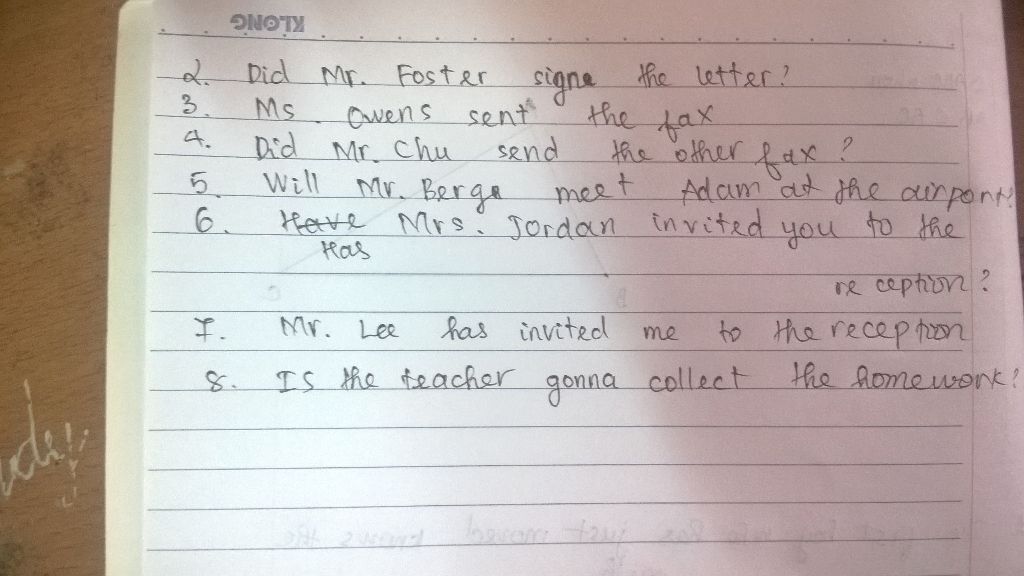 KLONG
2. Did Mr. Foster signe the letter?
3. Ms. Owens sent the fax
4. Did Mr. Chu send the other fax?
5. Will Mr. Berge meet Adam at the airport?
6. Have Mrs. Jordan invited you to the
Has
reception?
7. Mr. Lee has invited me to the reception
8. Is the teacher gonna collect the homework?